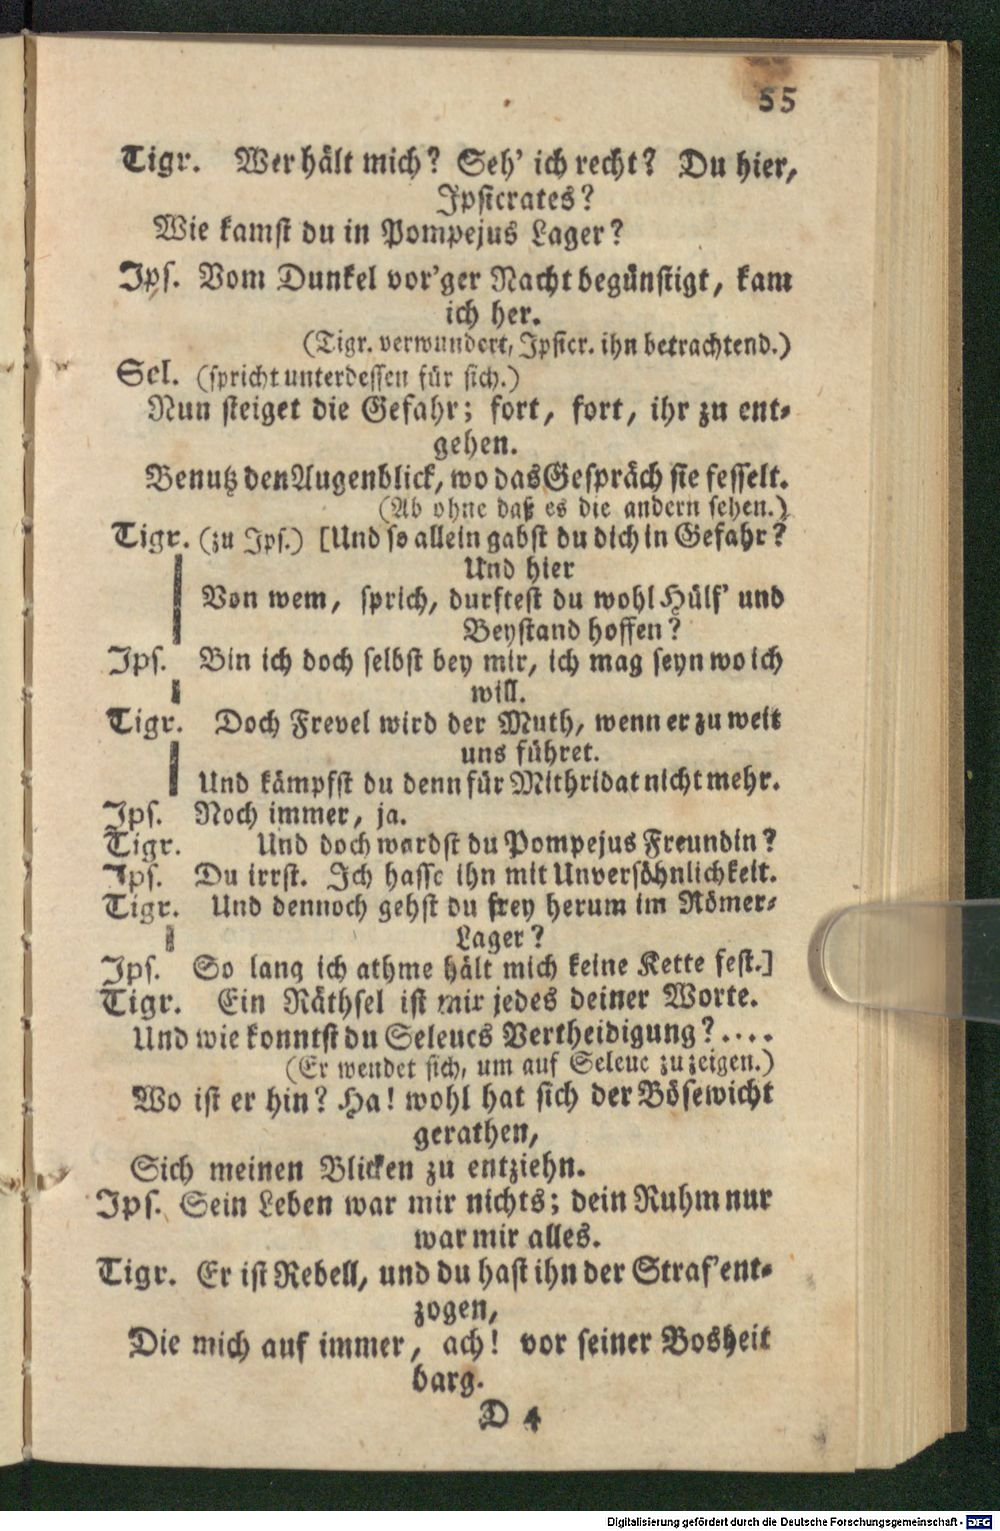 55
Tigr. Wer hält mich? Seh' ich recht? Du hier,
Ipsicrates?
Wie kamst du in Pompejus Lager?
Ips. Vom Dunkel vor'ger Nacht begünstigt, kam
ich her.
(Tigr. verwundert, Ipsicr. ihn betrachtend.)
Sel. (spricht unterdessen für sich.)
Nun steiget die Gefahr; fort, fort, ihr zu ent-
gehen.
Benutz den Augenblick, wo das Gespräch sie fesselt.
(Ab ohne daß es die andern sehen.)
Tigr. (zu Ips.) [Und so allein gabst du dich in Gefahr?
Und hier
Von wem, sprich, durftest du wohl Hülf' und
Beystand hoffen?
Ips. Bin ich doch selbst bey mir, ich mag seyn wo ich
will.
Tigr. Doch Frevel wird der Muth, wenn er zu weit
uns führet.
Und kämpfst du denn für Mithridat nicht mehr.
Ips. Noch immer, ja.
Tigr. Und doch wardst du Pompejus Freundin?
Ips. Du irrst. Ich hasse ihn mit Unversöhnlichkeit.
Tigr. Und dennoch gehst du frey herum im Römer-
Lager?
Ips. So lang ich athme hält mich keine Kette fest.]
Tigr. Ein Räthsel ist mir jedes deiner Worte.
Und wie konntst du Seleucs Vertheidigung?....
(Er wendet sich, um auf Seleuc zu zeigen.)
Wo ist er hin? Ha! wohl hat sich der Bösewicht
gerathen,
Sich meinen Blicken zu entziehn.
Ips. Sein Leben war mir nichts; dein Ruhm nur
war mir alles.
Tigr. Er ist Rebell, und du hast ihn der Straf' ent-
zogen,
Die mich auf immer, ach! vor seiner Bosheit
barg.
D 4
Digitalisierung gefördert durch die Deutsche Forschungsgemeinschaft - DFG